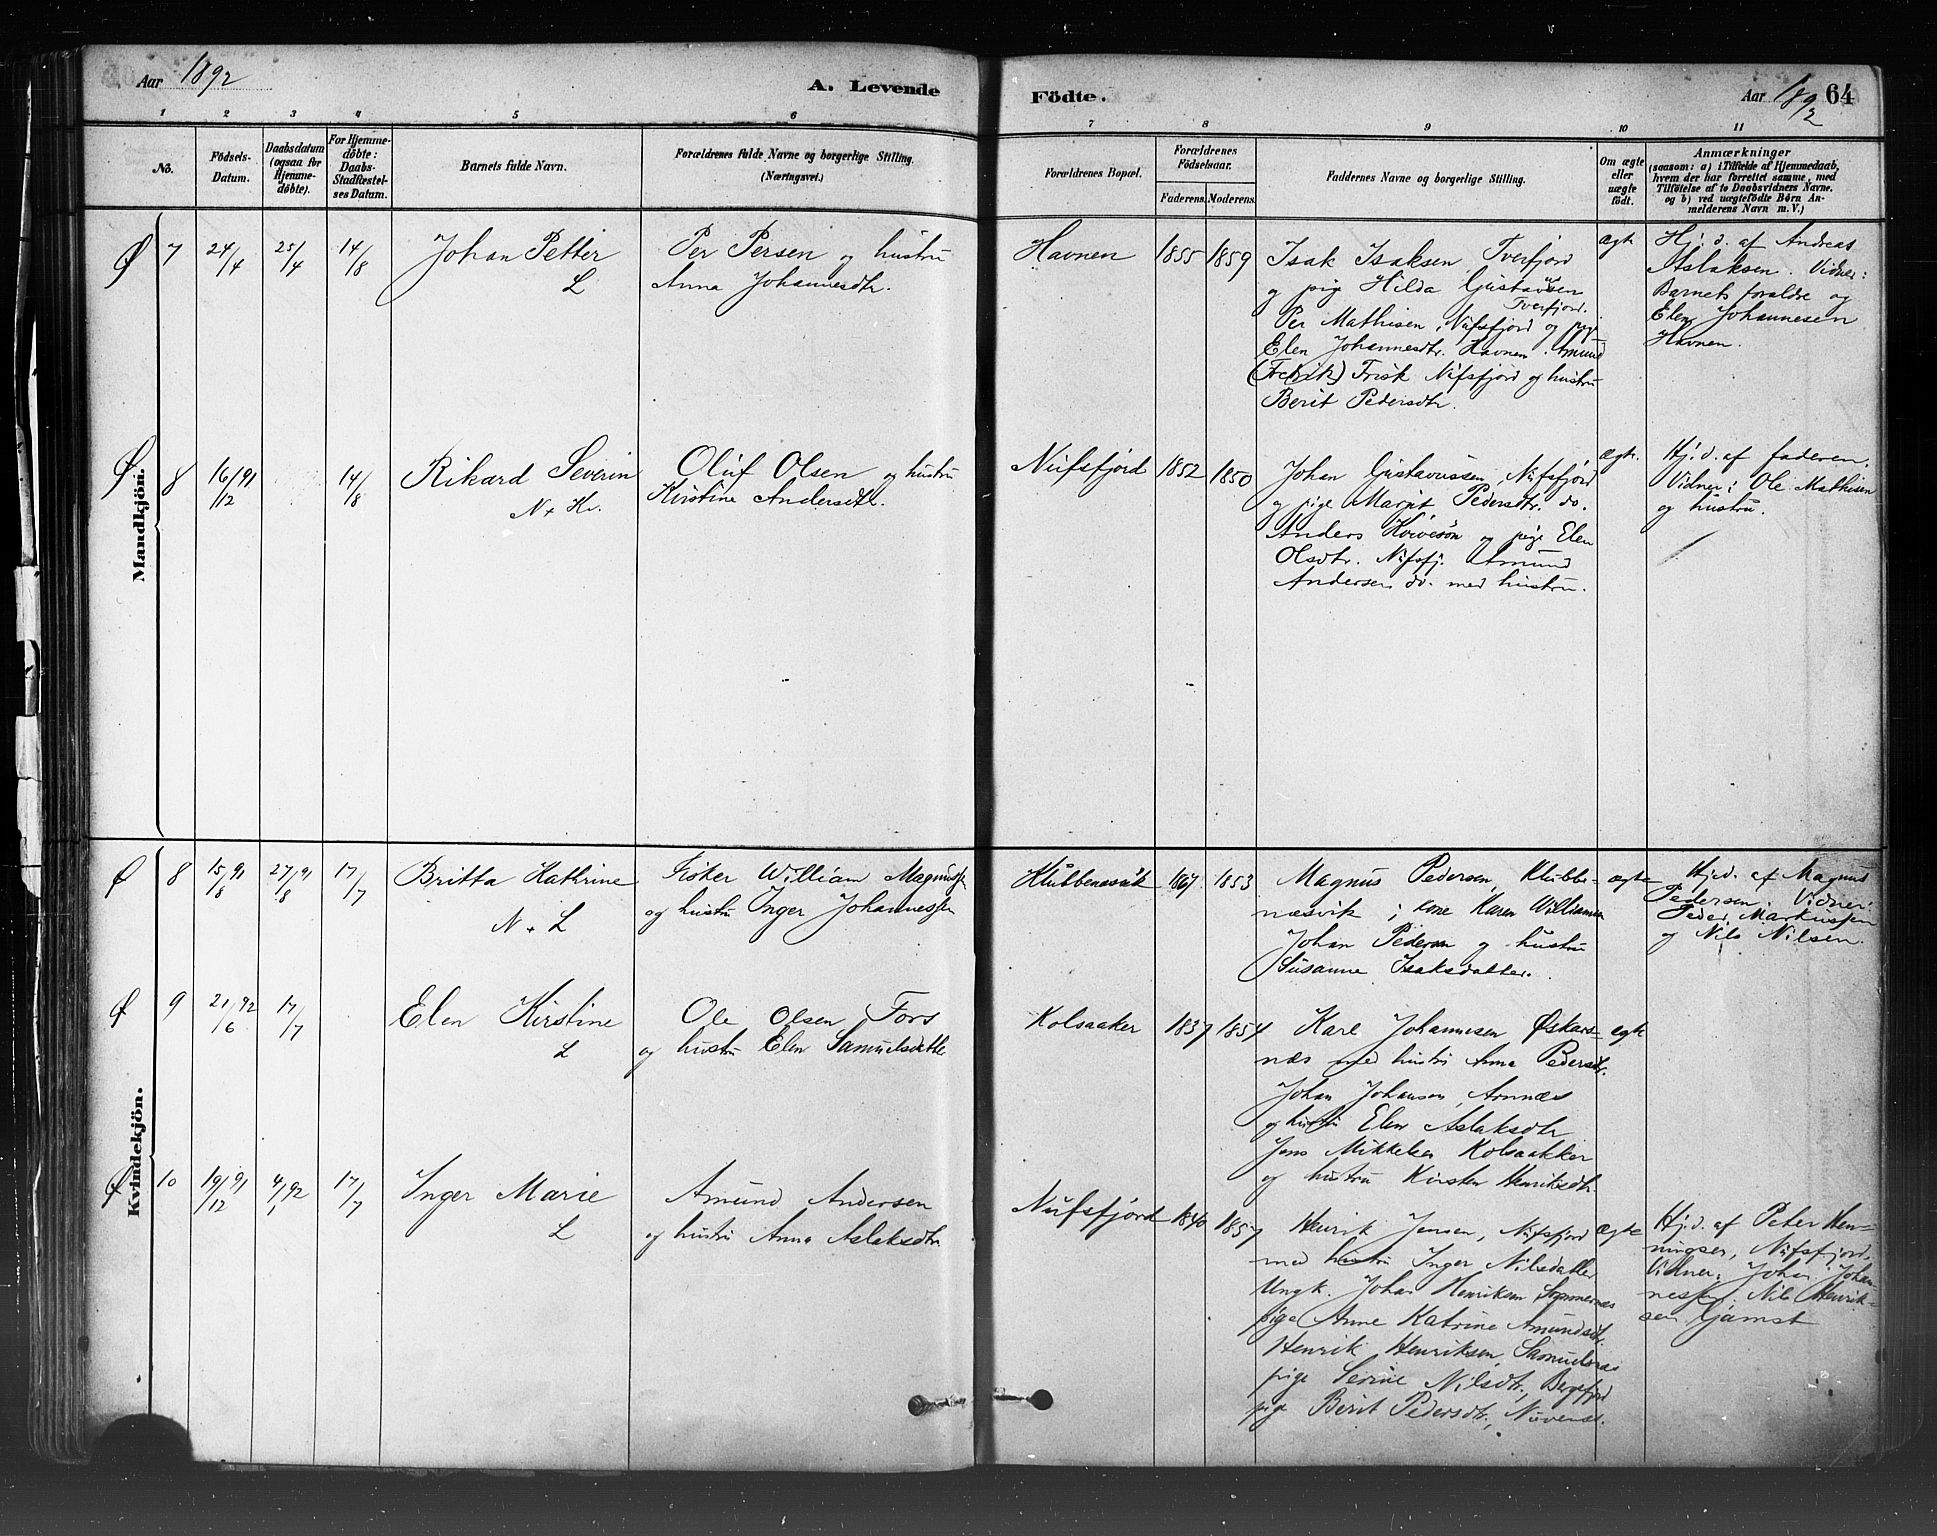 Aar 1892
A. Levende
Födte.
Aar 1892
64
1 2 3 4 5 6 7 8 9 10 11
No.
Födsels-
Datum.
Daabsdatum
(ogsaa for
Hjemme-
döbte).
For Hjemme-
döbte:
Daabs-
Stadfæstel-
ses Datum.
Barnets fulde Navn.
Forældrenes fulde Navne og borgerlige Stilling.
(Næringsvei.)
Forældrenes Bopæl.
Forældrenes
Födselsaar.
Faderens. Moderens.
Faddernes Navne og borgerlige Stilling.
Om ægte
eller
uægte
födt.
Anmærkninger
(saasom: a) i Tilfælde af Hjemmedaab,
hvem der har forrettet samme, med
Tilföielse af to Daabsvidners Navne.
og b) ved uægtefödte Börn An-
melderens Navn m. V.)
Mandkjön.
Ø 7 24/4 25/4 14/8
Johan Petter
L
Per Persen og hustru
Anna Johannesdtr.
Havnen 1855 1859
Isak Isaksen, Tverfjord
og pige Hilda Gustavsen
Tverfjord.
Per Mathisen, Nufsfjord og pige
Elen Johannesdtr. Havnen. Amund
(Fredrik) Frisk Nufsfjord og hustru
Berit Pedersdtr.
ægte
Hj. d. af Andreas
Aslaksen. Vidner:
Barnets forældre og
Elen Johannesen
Havnen.
Ø 8 16/12 91 14/8
Rikard Severin
N + Kv.
Oluf Olsen og hustru
Kirstine Andersdtr.
Nufsfjord 1852 1850
Johan Gustavussen, Nufsfjord
og pige Margit Pedersdtr. do.
Anders og pige Elen
Olsdtr. Nufsfj. Amund
Andersen do. med hustru.
ægte.
Hj. d. af faderen.
Vidner: Ole Mathisen
og hustru.
Kvindekjön.
Ø 8 15/8 91 27/8 91 17/7
Britta Kathrine
N + L
Fisker William Magnussen
og hustru Inger Johannessen
Klubbenæsvik 1867 1853
Magnus Pedersen, Klubbe-
næsvik; kone Karen Williamsen
Johan Pedersen og hustru
Susanne Isaksdatter.
ægte
Hjd. af Magnus
Pedersen. Vidner:
Peder Markussen
og Nils Nilsen.
Ø 9 21/6 92 17/7
Elen Kirstine
L
Ole Olsen Fors
og hustru Elen Samuelsdatter
Kolsaaker 1837 1854
Karl Johannesen Øskars-
næs med hustru Anna Pedersdtr.
Johan Johansen, Arnnæs
og hustru Elen Aslaksdtr
Jens Mikkelsen Kolsaakker
og hustru Kirsten Henriksdtr.
ægte
Ø 10 19/12 91 4/1 92 17/7
Inger Marie
L
Amund Andersen
og hustru Anna Aslaksdtr.
Nufsfjord 1840 1857
Henrik Jensen, Nufsfjord
med hustru Inger Nilsdatter
Ungk. Johan Henriksen
pige Anne Katrine Amundsdtr.
Henrik Henriksen,
pige Serine Nilsdtr., Bergsfjord
pige Berit Pedersdtr.,
ægte
Hj. d. af Peter Hen-
ningsen, Nufsfjord.
Vidner: Johan Johan-
nessen. Nils Henrik-
sen Gamst